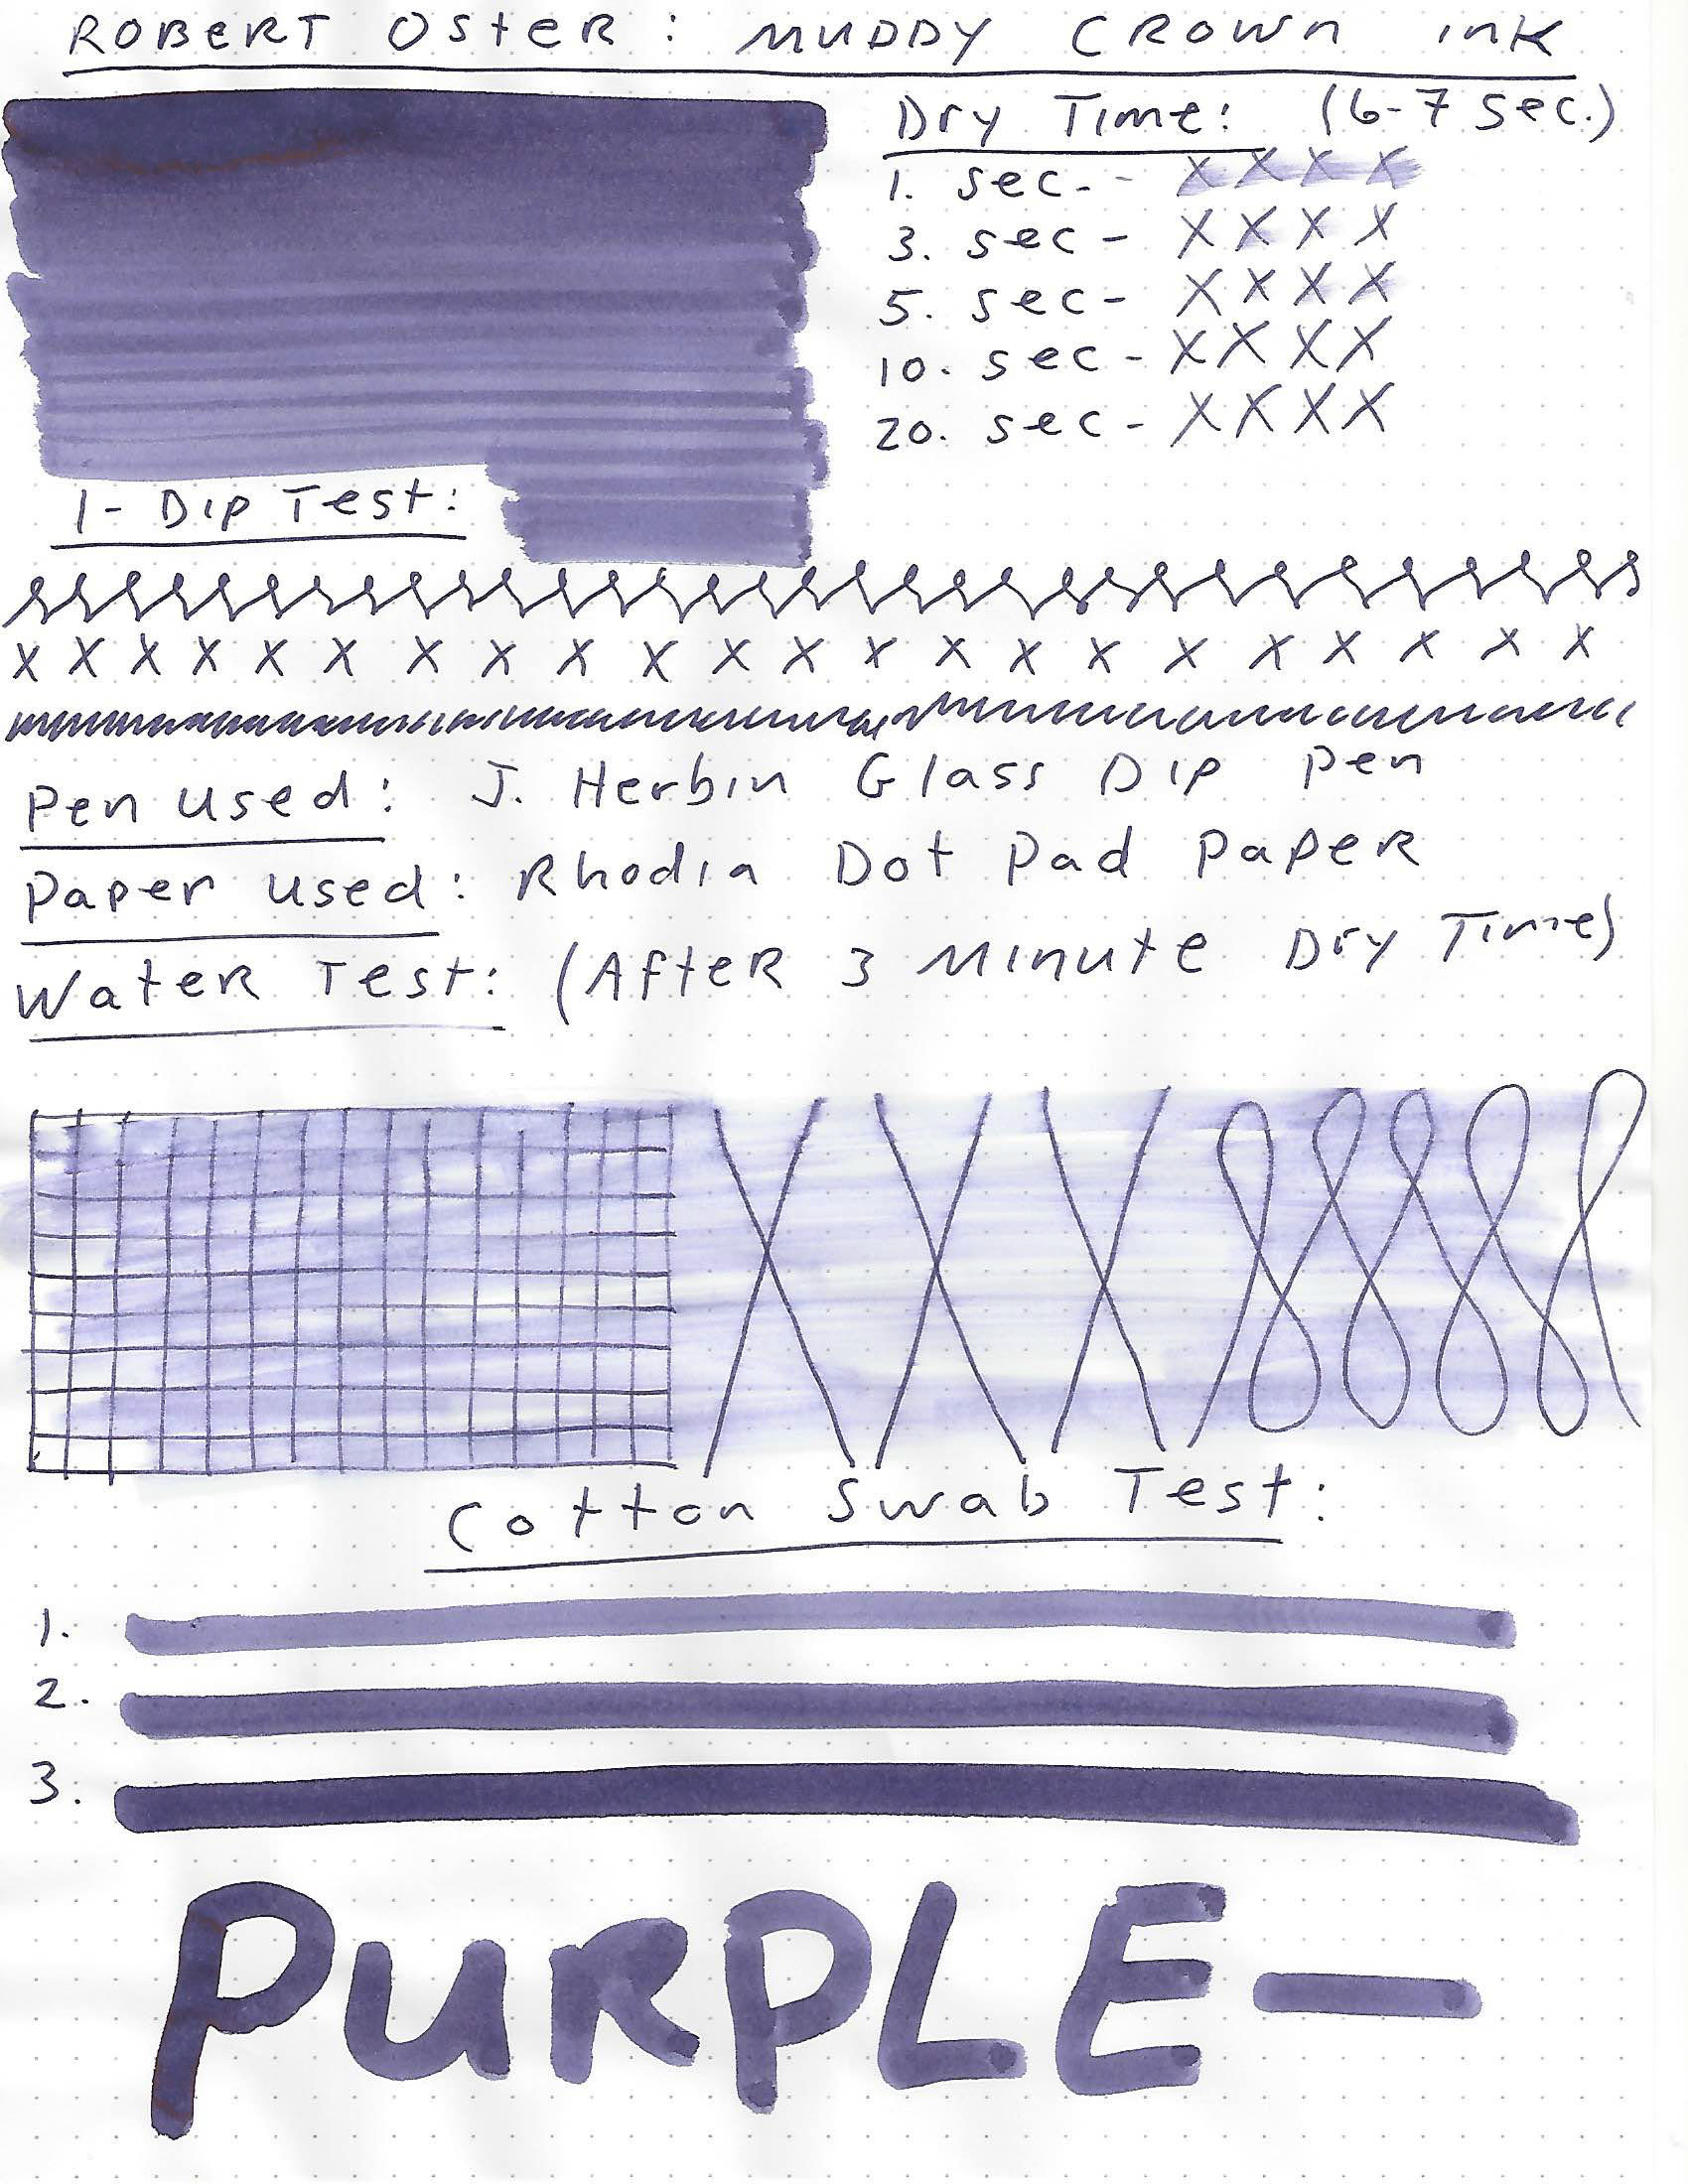 ROBERT OSTER: MUDDY CROWN INK
Dry Time: (6-7 Sec.)
1. sec-- X X X X
3. sec - X X X X
5. sec- X X X X
10. sec - X X X X
20. sec - X X X X
1- Dip Test:
X X X X X X X X X X X X X X X X X X X X X X
Pen used: J. Herbin Glass Dip Pen
Paper used: Rhodia Dot Pad Paper
Water Test: (After 3 Minute Dry Time)
Cotton Swab Test:
1.
2.
3.
PURPLE-